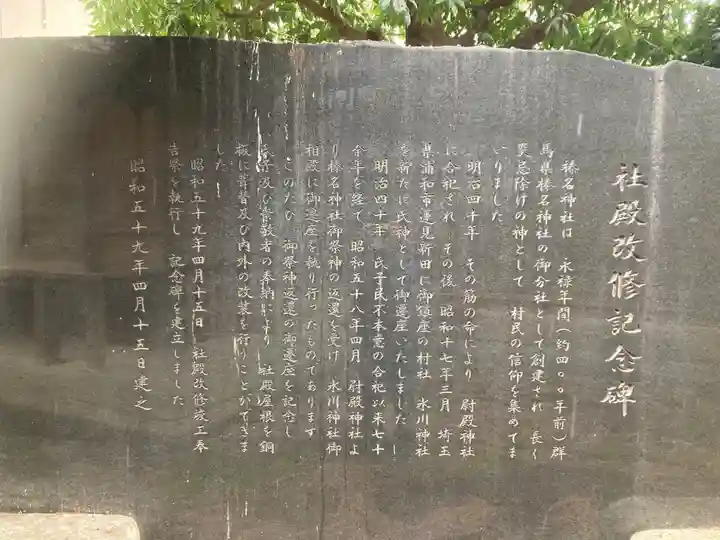 社殿改修記念碑
榛名神社は 永禄年間(約四〇〇年前)群
馬県榛名神社の御分社として創建され 長く
災忌除けの神として 村民の信仰を集めてま
いりました
明治四十年 その筋の命により 尉殿神社
に合祀され その後 昭和十七年三月 埼玉
県浦和市蓮見新田に御鎮座の村社 氷川神社
を新たに氏神として御遷座いたしました
明治四十年 氏子民不本意の合祀以来七十
余年を経て 昭和五十八年四月 尉殿神社よ
り榛名神社御祭神の返還を受け 氷川神社御
相殿に御遷座を執り行ったものであります
このたび 御祭神返還の御遷座を記念し
氏子及び崇敬者の奉納により 社殿屋根を銅
板に葺替及び内外の改装を行うことができま
した
昭和五十九年四月十五日 社殿改修竣工奉
告祭を執行し 記念碑を建立しました
昭和五十九年四月十五日建之